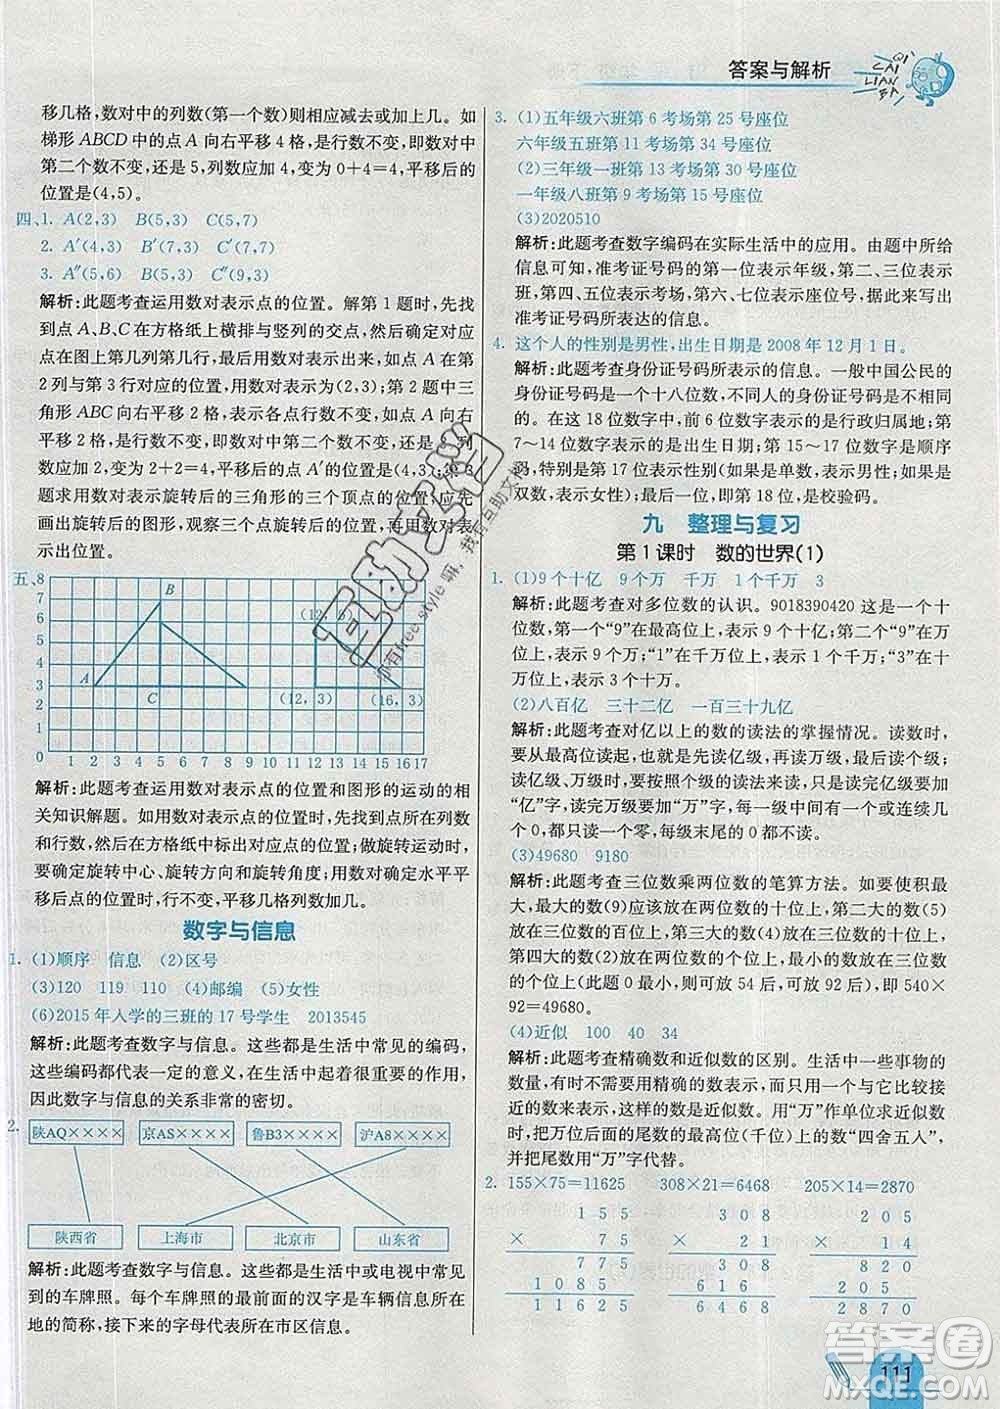 答案与解析
QI
CAI
LIAN
BA
移几格,数对中的列数(第一个数)则相应减去或加上几。如
梯形 ABCD 中的点 A 向右平移 4 格,是行数不变,即数对中
第二个数不变,还是 5,列数应加 4,变为 0+4=4,平移后的
位置是(4,5)。
四、1. A(2,3) B(5,3) C(5,7)
2. A′(4,3) B′(7,3) C′(7,7)
3. A″(5,6) B″(5,3) C″(9,3)
解析:此题考查运用数对表示点的位置。解第 1 题时,先找
到点 A、B、C 在方格纸上横排与竖列的交点,然后确定对应
点在图上第几列第几行,最后用数对表示出来。如点 A 在
第 2 列与第 3 行对应的位置,用数对表示为(2,3);第 2 题中三
角形 ABC 向右平移 2 格,表示各点行数不变,列数加 2,如
点 A 向右平移 2 格,行数不变,即数对中第二个数不变,列
数应加 2,变为 2+2=4,平移后点 A′的位置是(4,3);第 3
题求用数对表示旋转后的三角形的三个顶点的位置,应先
画出旋转后的图形,观察三个点对应的位置,再用数对表
示出位置。
五、8
7
6
5
4
3
2
1
0
B
A
C
(12,5)
(12,3)
(16,3)
1 2 3 4 5 6 7 8 9 10 11 12 13 14 15 16 17
解析:此题考查运用数对表示点的位置和图形的运动的相
关知识解题。如用数对表示点的位置时,先找到点的列数
和行数,然后在方格纸中标出对应点的位置;做旋转运动时,
要确定旋转中心、旋转方向和旋转角度;用数对确定水平平
移后点的位置时,行不变,平移几格列数加几。
数字与信息
1. (1)顺序 信息 (2)区号
(3)120 119 110 (4)邮编 (5)女性
(6)2015 年入学的三班的 17 号学生 2013545
解析:此题考查数字与信息。这些都是生活中常见的编码,
这些编码都代表一定的意义,在生活中起着很大的作用,
因此数字与信息的关系非常的密切。
2.
陕AQ×××× 京AS×××× 鲁B3×××× 沪A8××××
陕西省 上海市 北京市 山东省
解析:此题考查数字与信息。这些都是生活中或电视中常见到
的车牌照。每个车牌照的最前面的汉字是车辆信息所在
地的简称,接下来的字母代表所在市区信息。
3. (1)五年级六班第 6 考场第 25 号座位
六年级五班第 1 考场第 34 号座位
(2)三年级一班第 13 考场第 21 号座位
一年级八班第 9 考场第 15 号座位
(3)2020510
解析:此题考查数字编码在实际生活中的应用。由题中所给
信息可知,准考证号码的第一位表示年级,第二、三位表示
班,第四、五位表示考场,第六、七位表示座位号,据此来写出
准考证号码所表达的信息。
4. 这个人的性别是男性,出生日期是 2008 年 12 月 1 日。
解析:此题考查身份证号码所表示的信息。一般中国公民的
身份证号码是一个十八位数,不同人的身份证号码是不相同
的。在这 18 位数字中,前 6 位数字表示的是行政归属地;第
7～14 位数字表示的是出生日期;第 15～17 位数字是顺序
码,特别是第 17 位表示性别(如果是单数,表示男性;如果是
双数,表示女性);最后一位,即第 18 位,是校验码。
九 整理与复习
第 1 课时 数的世界(1)
1. (1)9 个十亿 9 个万 千万 1 个千万 3
解析:此题考查对多位数的认识。9018390420 这是一个十
位数,第一个“9”在最高位上,表示 9 个十亿;第二个“9”在万
位上,表示 9 个万;“1”在千万位上,表示 1 个千万;“3”在十万
位上,表示 3 个十万。
(2)八百亿 三十二亿 一百三十九亿
解析:此题考查对亿以上的数的读法的掌握情况。读数时,
要从最高位读起,也就是先读亿级,再读万级,最后读个级;
读亿级、万级时,要按照个级的读法来读,只是读完亿级要加
“亿”字,读完万级要加“万”字,数中间有一个“0”或者连续几
个 0,都只读一个零,每级末尾的 0 都不读。
(3)49680 9180
解析:此题考查三位数乘两位数的笔算方法。如要使积最
大,最大的数(9)应该放在两位数的十位上,第二大的数(5)
应放在三位数的百位上,第三大的数(4)放在三位数的十位上,
第四大的数(2)放在两位数的个位上,最小的数(0)放在三位数
的个位上(因为 5>2,则可能放 54 后,可放 92 后),即 540×
92=49680。
(4)近似 100 40 34
解析:此题考查精确数和近似数的区别。生活中一些事物的
数量,有时不用精确的数表示,而只用一个与它比较接近的
数来表示,这样的数是近似数。用“万”作单位求近似数时,
即把万位后面的尾数的最高位(千位)上的数“四舍五入”,
并把尾数用“万”字代替。
2. 155×75=11625 308×21=6468 205×14=2870
1 5 5 3 0 8 2 0 5
× 7 5 × 2 1 × 1 4
7 7 5 3 0 8 8 2 0
1 0 8 5 6 1 6 2 0 5
1 1 6 2 5 6 4 6 8 2 8 7 0
111
答案圈
MXQE.COM